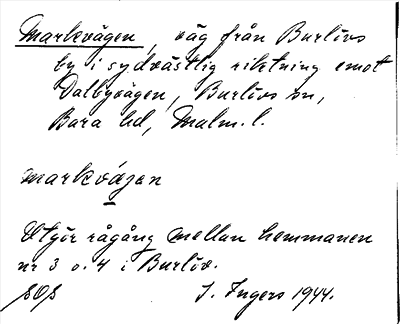 Markvägen, väg från Burlövs
by i sydvästlig riktning emot
Dalbyvägen, Burlövs sn,
Bara hd, Malm. l.
markvájen
Utgör rågång mellan hemmanen
nr 3 o. 4 i Burlöv.
I. Ingers 1944.